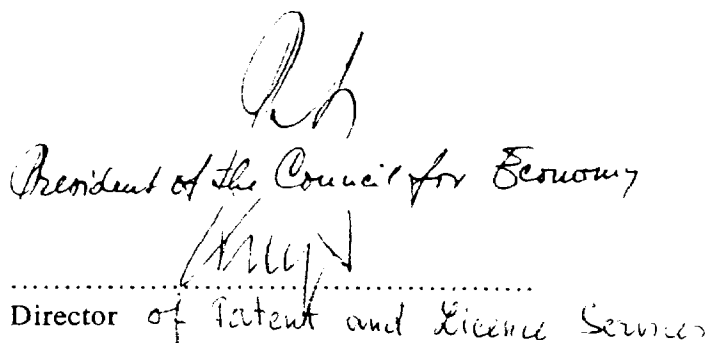 President of the Council for Economy
Director of Patent and Licence Services